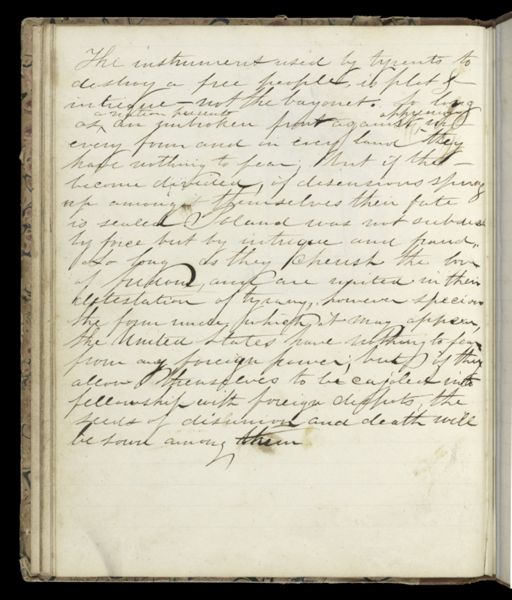 The instrument used by tyrants to
destroy a free people, is plot &
intrigue – not the bayonet. So long
a nation presents oppression
as an unbroken front against in
every form and in every land they
have nothing to fear; but if they
become divided, if dissensions spring
up amongst themselves their fate
is sealed Poland was not subdued
by force but by intrigue and fraud.
So long as they cherish the love
of freedom, and are united in their
detestation of tyrany, however specious
the form under which it may appear,
the United States have nothing to fear
from any foreign power; but if they
allow themselves to be cajoled into
fellowship with foreign despots, the
seeds of disunion and death will
be sown among them